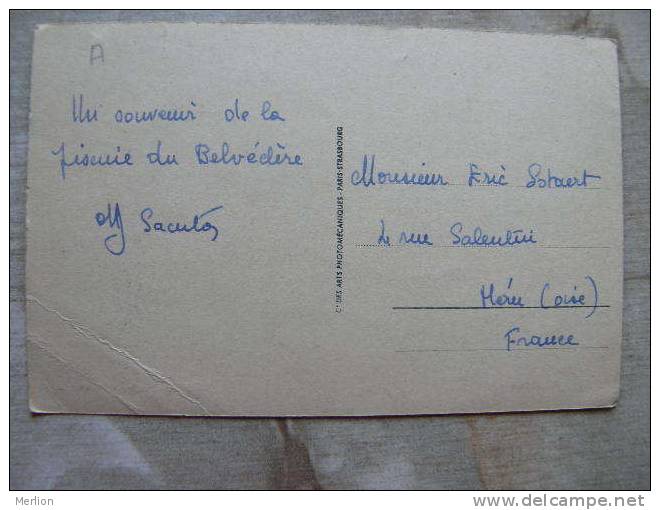 A
Un souvenir de la
piscine du Belvédère
Monsieur Eric
rue Salentin
Méru (Oise)
France
Cie DES ARTS PHOTOMÉCANIQUES - PARIS-STRASBOURG
Merlion
www.delcampe.net